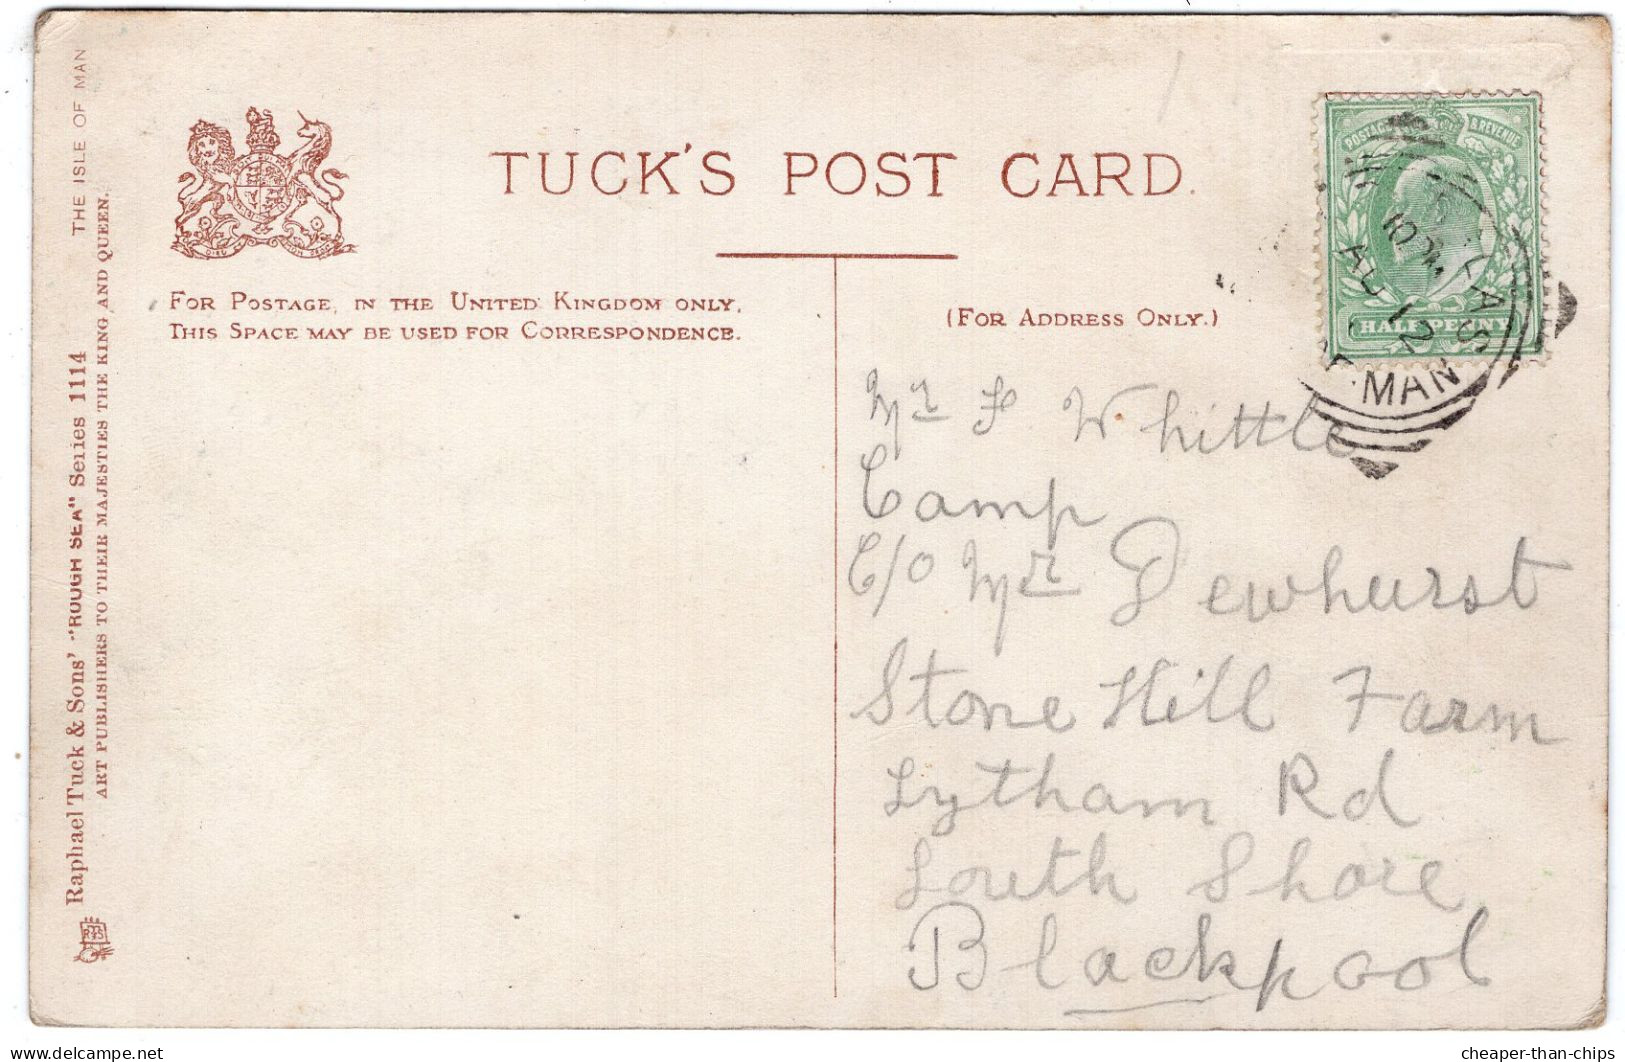 THE ISLE OF MAN
Raphael Tuck & Sons' "ROUGH SEA" Series 1114
ART PUBLISHERS TO THEIR MAJESTIES THE KING AND QUEEN.
TUCK'S POST CARD.
FOR POSTAGE, IN THE UNITED KINGDOM ONLY,
THIS SPACE MAY BE USED FOR CORRESPONDENCE.
(FOR ADDRESS ONLY.)
POSTAGE & REVENUE
HALFPENNY
10 PM
AU 12
MAN
Mr F Whittle
Camp
C/O Mr Dewhurst
Stone Hill Farm
Lytham Rd
South Shore
Blackpool
delcampe.net
cheaper-than-chips